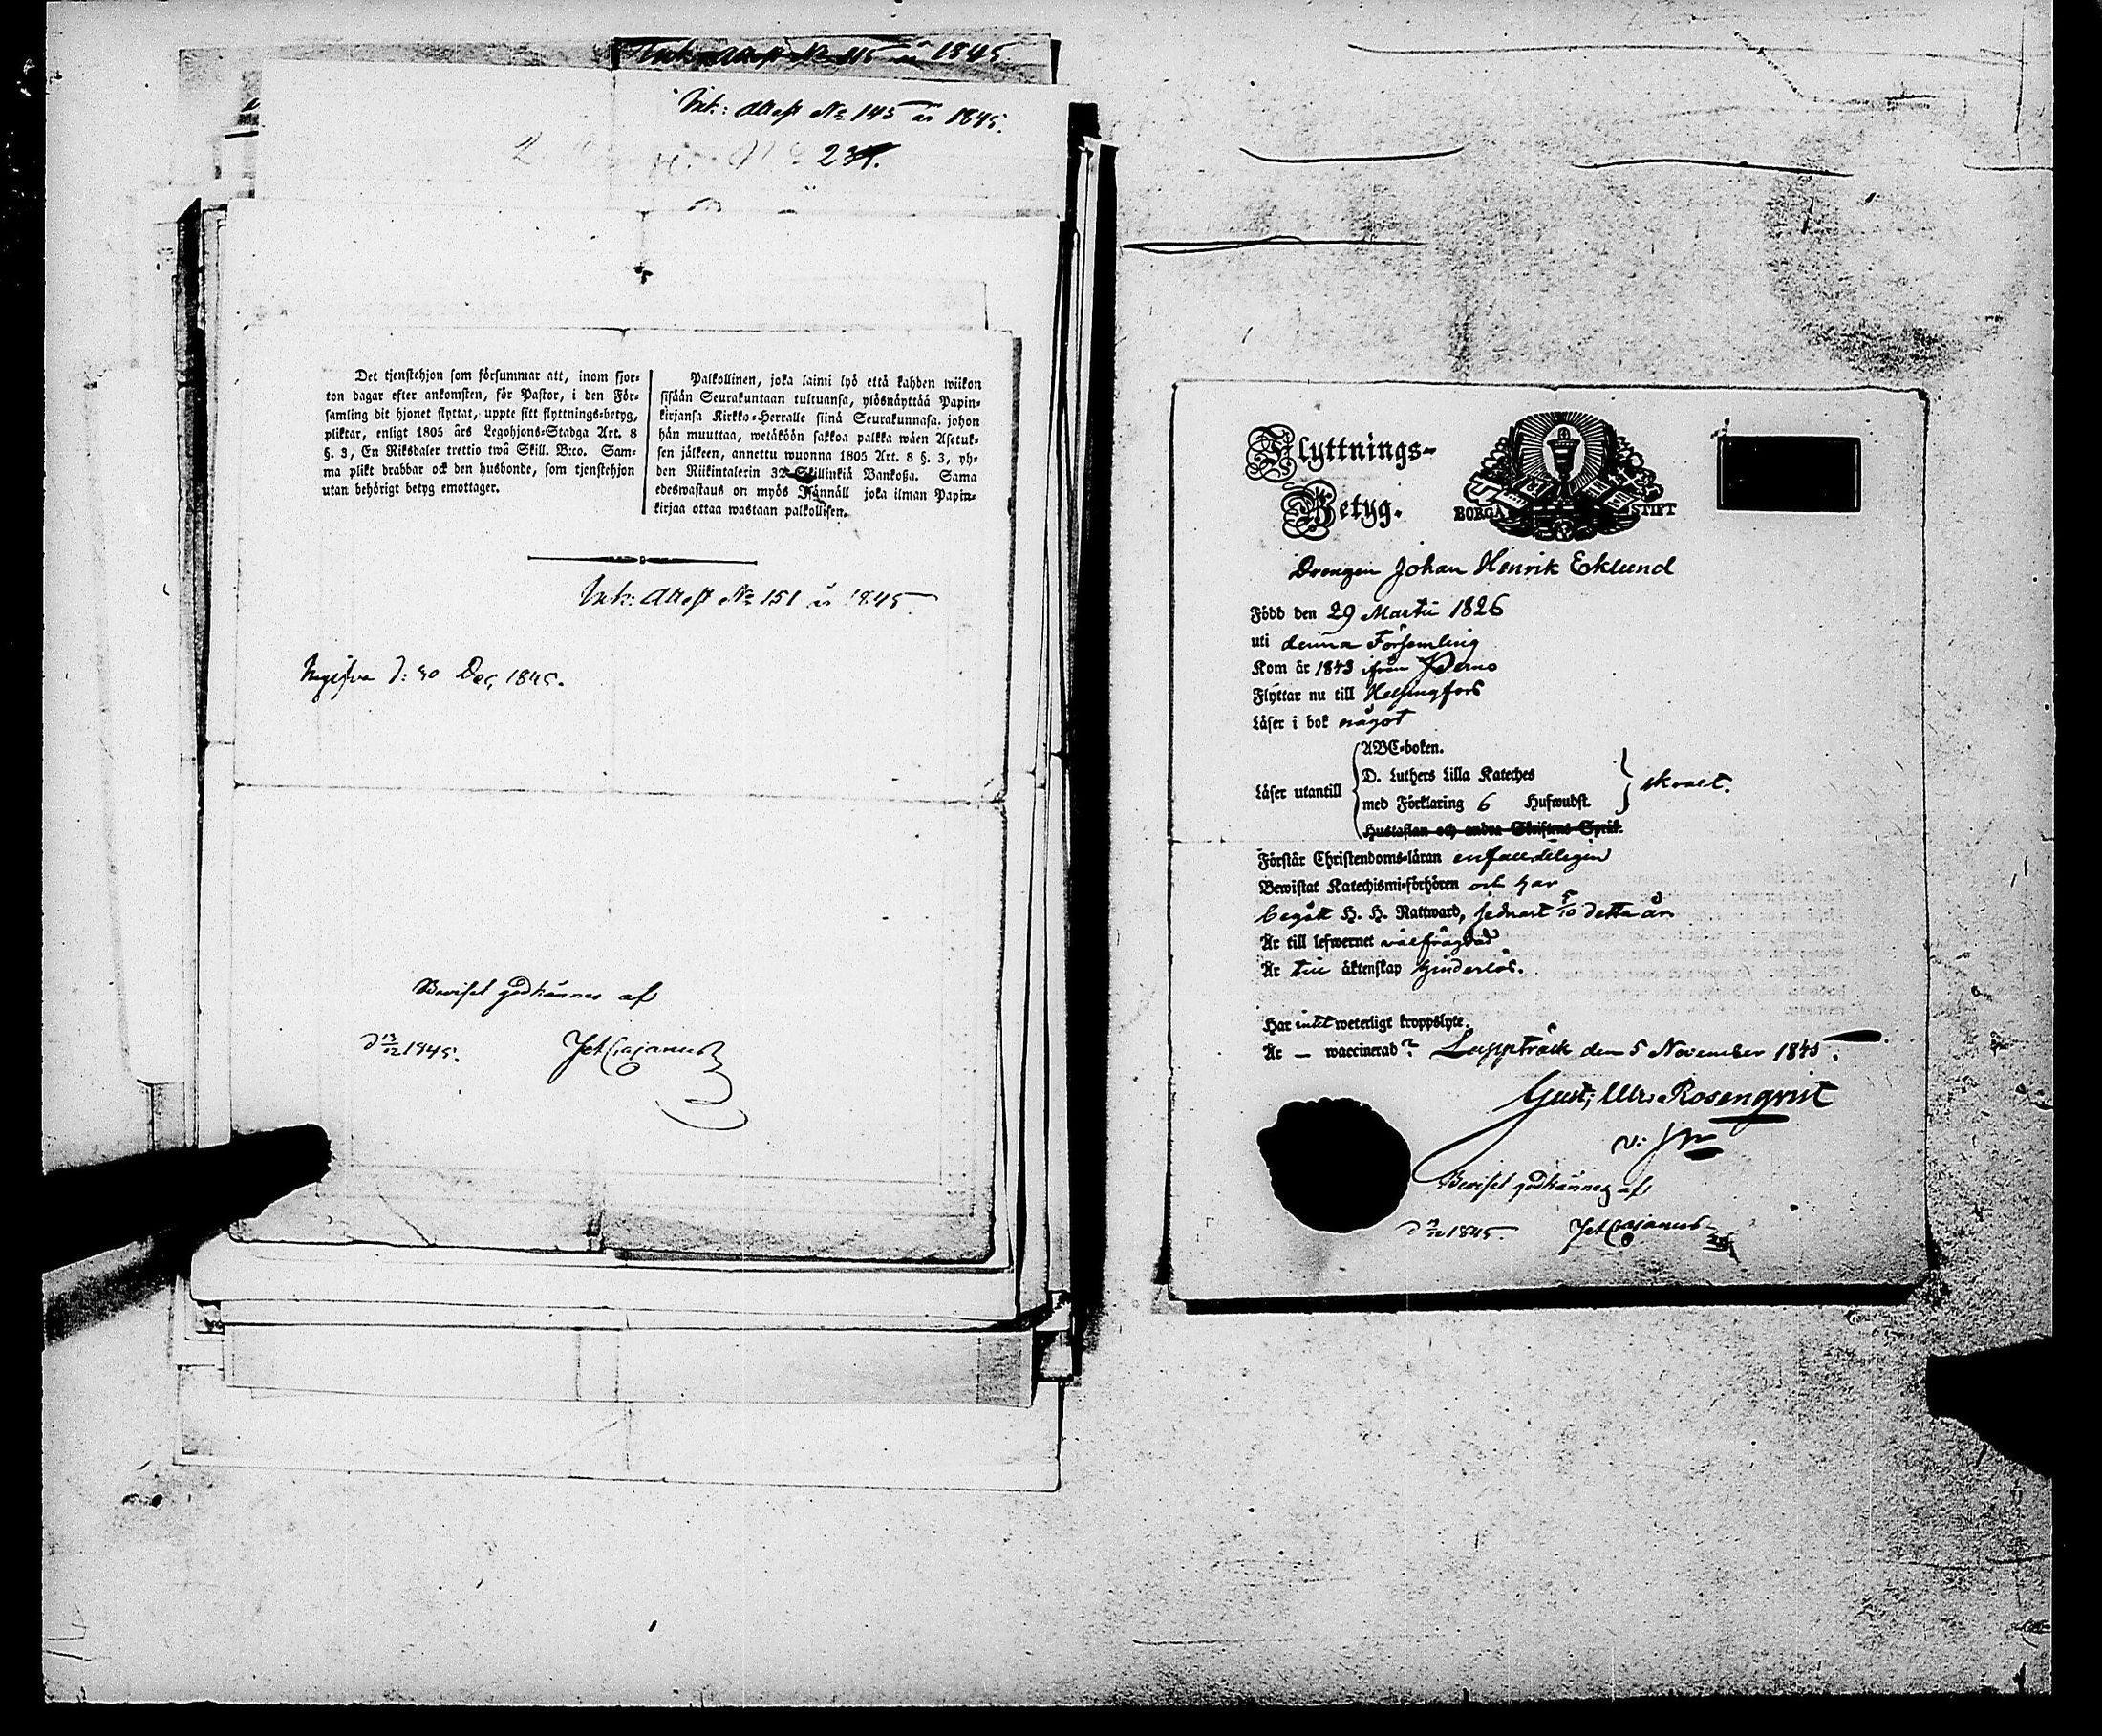 Ink: Attest No 115 år 1845
Ink: Attest No 145 år 1845.
No 237.
Det tjenstehjon som försummar att, inom fjor-
ton dagar efter ankomsten, för Pastor, i den För-
samling dit hjonet flyttat, uppte sitt flyttnings-betyg,
pliktar, enligt 1805 års Legohjons-Stadga Art. 8
§. 3, En Riksdaler trettio twå Skill. B:co. Sam-
ma plikt drabbar ock den husbonde, som tjenstehjon
utan behörigt betyg emottager.
Palkollinen, joka laimi lyö että kahden wiikon
sisään Seurakuntaan tultuansa, ylösnäyttää Papin-
kirjansa Kirkko-Herralle siinä Seurakunnasa, johon
hän muuttaa, wetäköön sakkoa palkka wäen Asetuk-
sen jälkeen, annettu wuonna 1805 Art. 8 §. 3, yh-
den Riikintalerin 32 Skillinkiä Bankoßa. Sama
edeswastaus on myös Isännäll joka ilman Papin-
kirjaa ottaa wastaan palkollisen.
Ink: Attest No 151 år 1845.
Ingifven d: 30 Dec, 1845.
Beviset godkännes af
d 13/12 1845. Joh Cajanus
Flyttnings-
Betyg.
BORGÅ STIFT
Drengen Johan Henrik Ecklund
Född den 29 Martii 1826
uti denna Församling
Kom år 1843 ifrån Perno
Flyttar nu till Helsingfors
Läser i bok något
Läser utantill
ABC-boken.
D. Luthers Lilla Kateches
med Förklaring 6 Hufwudst.
Hustaflan och andra Skriftens Språk.
skralt.
Förstår Christendoms-läran enfalldeligen
Bewistat Katechismi-förhören och har
begått H. H. Nattward, sednast 5/10 detta år
Är till lefwernet välfrägdad
Är till äktenskap hinderlös.
Har intet weterligt kroppslyte.
Är — waccinerad? Lappträsk den 5 November 1845.
Gust; Rosenqvist
Beviset godkännes af
d 13/12 1845. Joh Cajanus